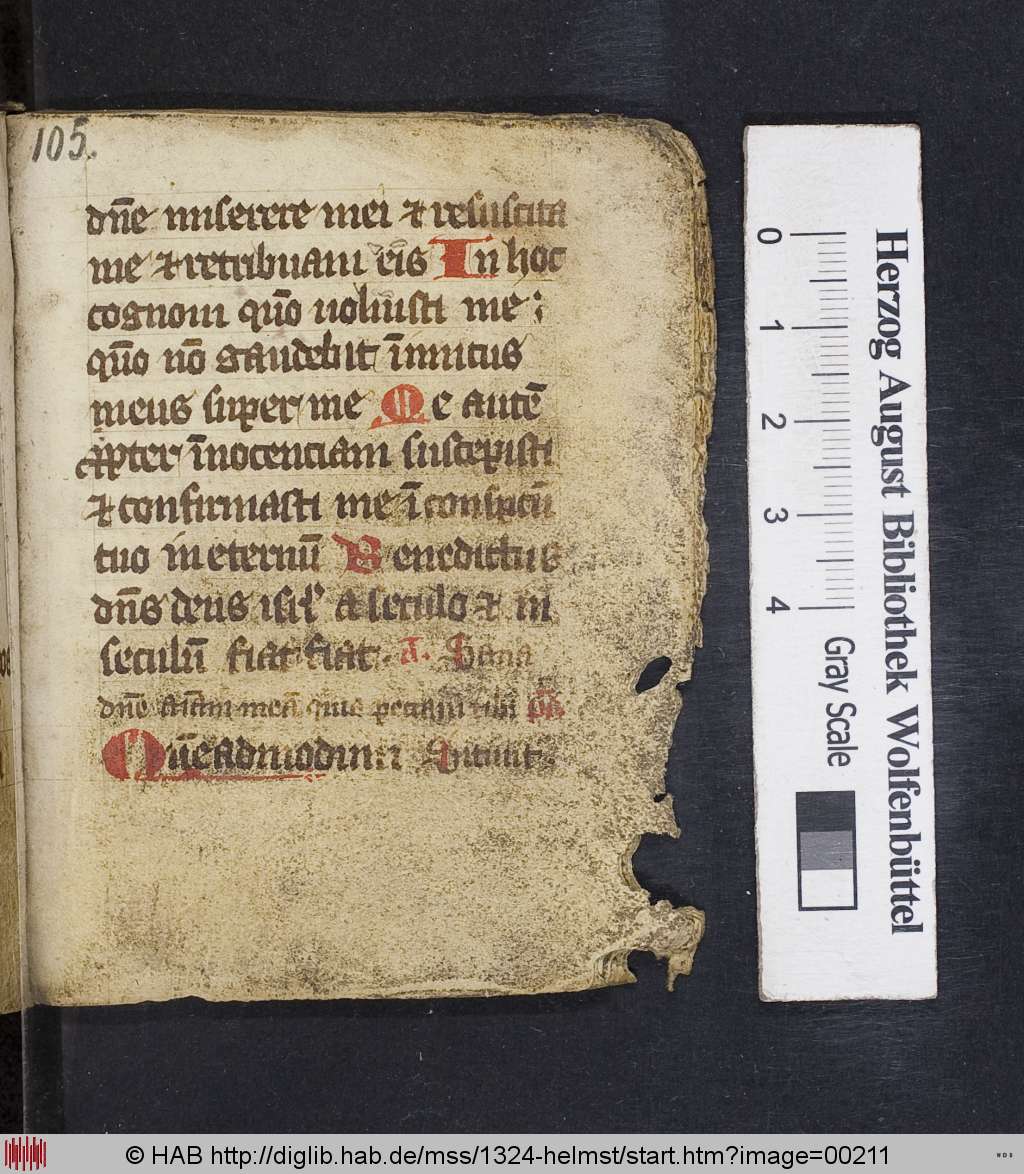 105.
dn̄e miserere mei ⁊ resuscita
me ⁊ retribuam eis̄ In hoc
cognoui qm̄o uoluisti me :
qm̄o nō gaudebit īimicus
meus super me Me autē
ꝓpter īnocenciam suscepisti
⁊ confirmasti me ī conspcū
tuo in eternū Benedictus
dn̄s deus isrl̄ a seculo ⁊ in
seculū fiat fiat. A. Sana
dn̄e aīam meā quia peccaui tibi p̄s
Quēadmodum Sitiuit.
0 1 2 3 4
Gray Scale
Herzog August Bibliothek Wolfenbüttel
© HAB http://diglib.hab.de/mss/1324-helmst/start.htm?image=00211